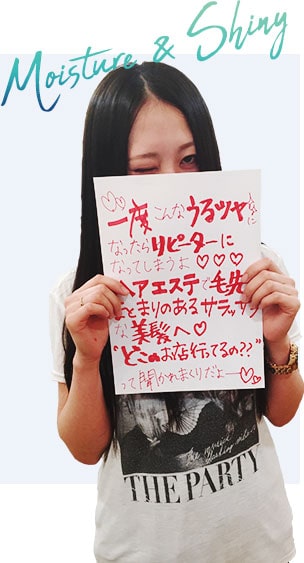 Moisture & Shiny
一度こんなうるツヤな髪に
なったらリピーターに
なってしまうよ♡♡♡
ヘアエステで毛先
まとまりのあるサラッサラ
な美髪へ♡
"どこのお店行ってるの??"
って聞かれまくりだよー♡
THE PARTY